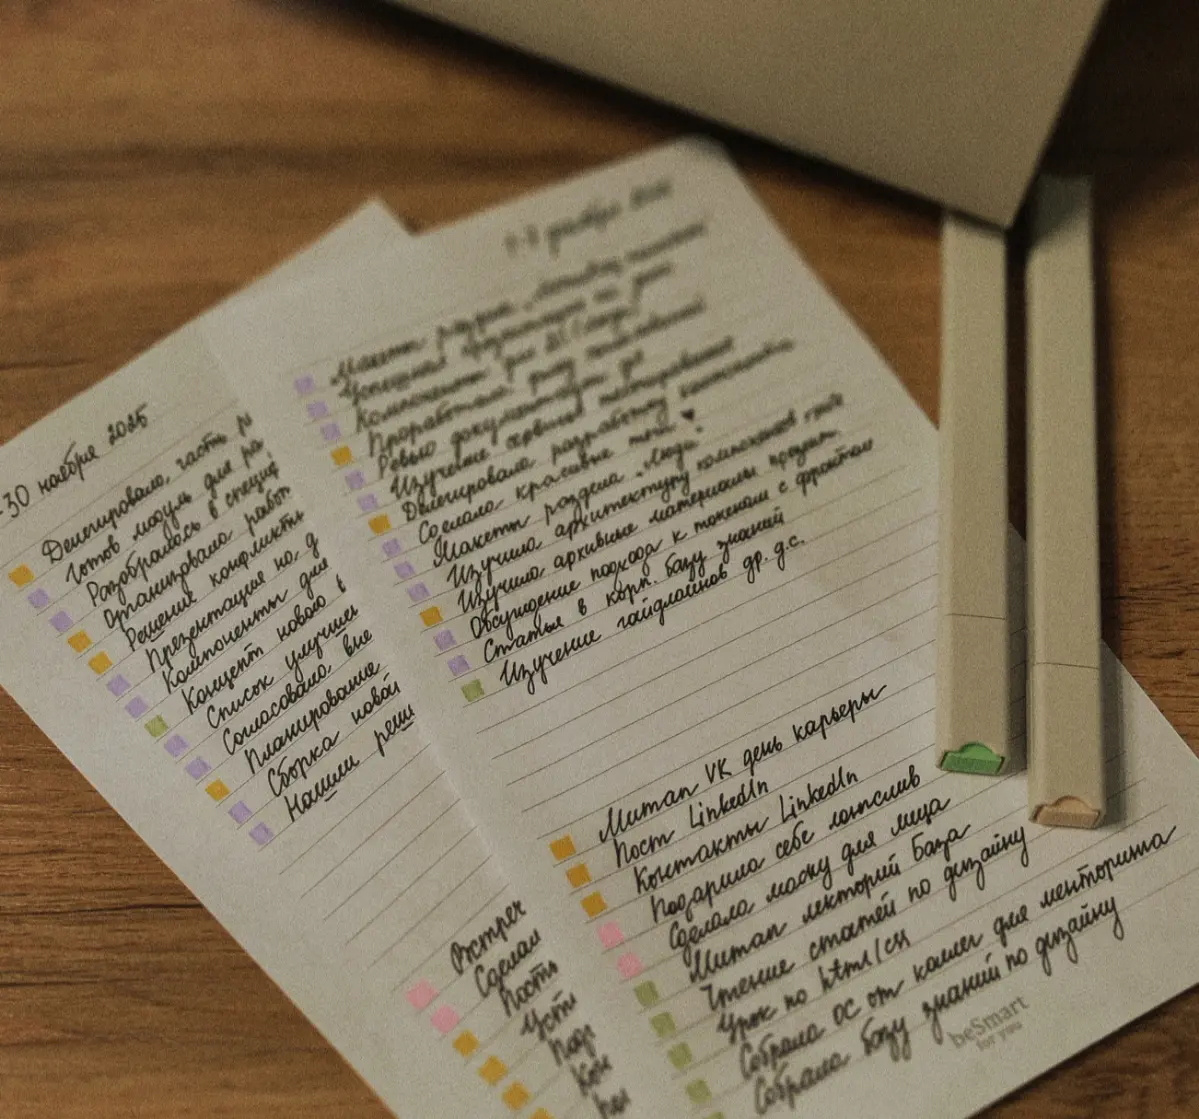 -30 ноября 2025
Делегировала, часть
Готов модуль для ра
Разобралась в специф
Организовала работ
Решение конфликтн
Презентация на д
Компоненты для
Концепт нового в
Список улучше
Согласовано, вне
Планирование
Сборка новой
Нашли реши
Встреч
Сделал
Пость
Усти
Кон
1-7 декабря 2025
Макеты раздела
Успешная презентация на
Компоненты для ДС
Проработала
Ревью документации ДС
Изучение сервиса тестирования
Делегировала разработку контента
Сделала красивые точи ♥
Макеты раздела „Люди“
Изучила архитектуру компонентов
Изучила архивные материалы продукт.
Обсуждение подхода к токенам с фронтом
Статья в корп. базу знаний
Изучение гайдлайнов др. д.с.
Митап VK день карьеры
Пост LinkedIn
Контакты LinkedIn
Подарила себе лонгслив
Сделала маску для лица
Митап лекторий База
Чтение статей по дизайну
Урок по html/css
Собрала ОС от коллег для менторинга
Собрала базу знаний по дизайну
beSmart
for you